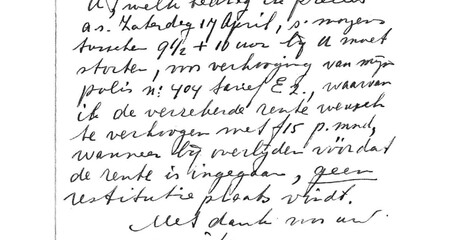 U, welk bedrag ik precies
a.s. Zaterdag 17 April, s. morgens
tusschen 9½ + 10 uur bij U moet
storten, voor verhooging van mijn
polis no. 404 tarief E 2., waarvan
ik de verzekerde rente wensch
te verhoogen met f 15 p. mnd,
wanneer bij overlijden vóórdat
de rente is ingegaan, geen
restitutie plaats vindt.
Met dank voor uw